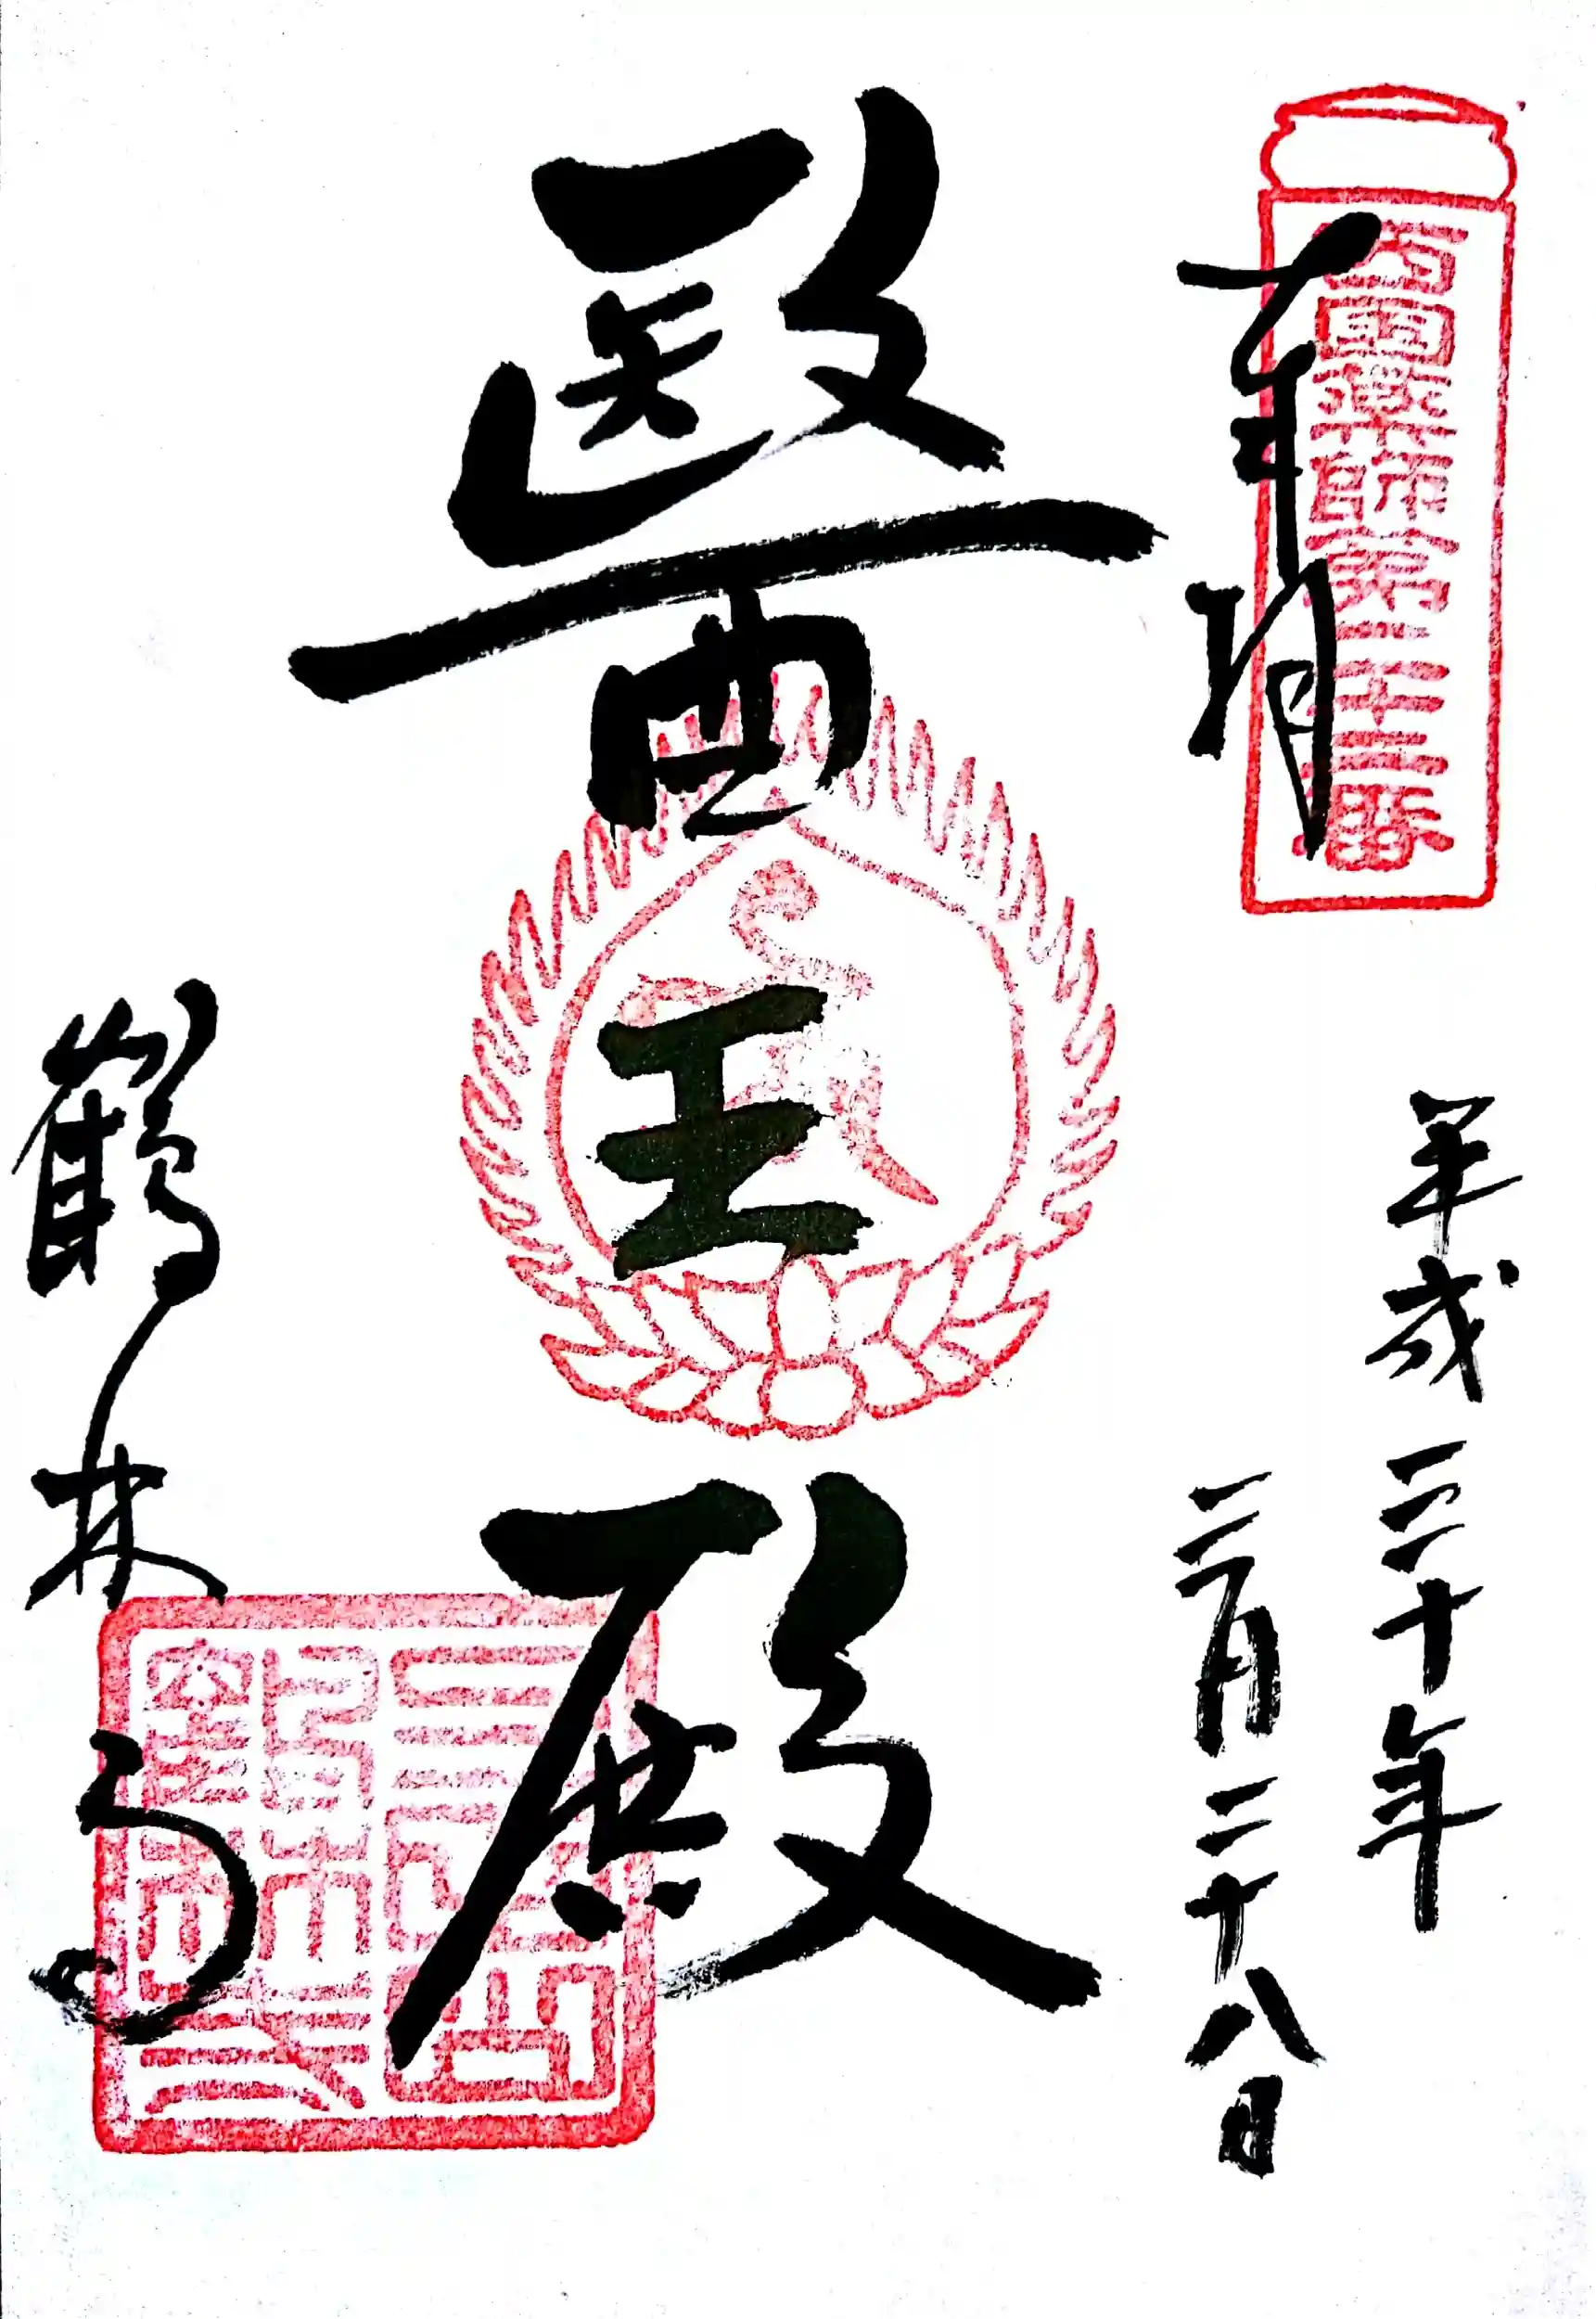 西國藥師第二十二番
奉拝
平成三十年
三月二十八日
醫王殿
鶴林寺